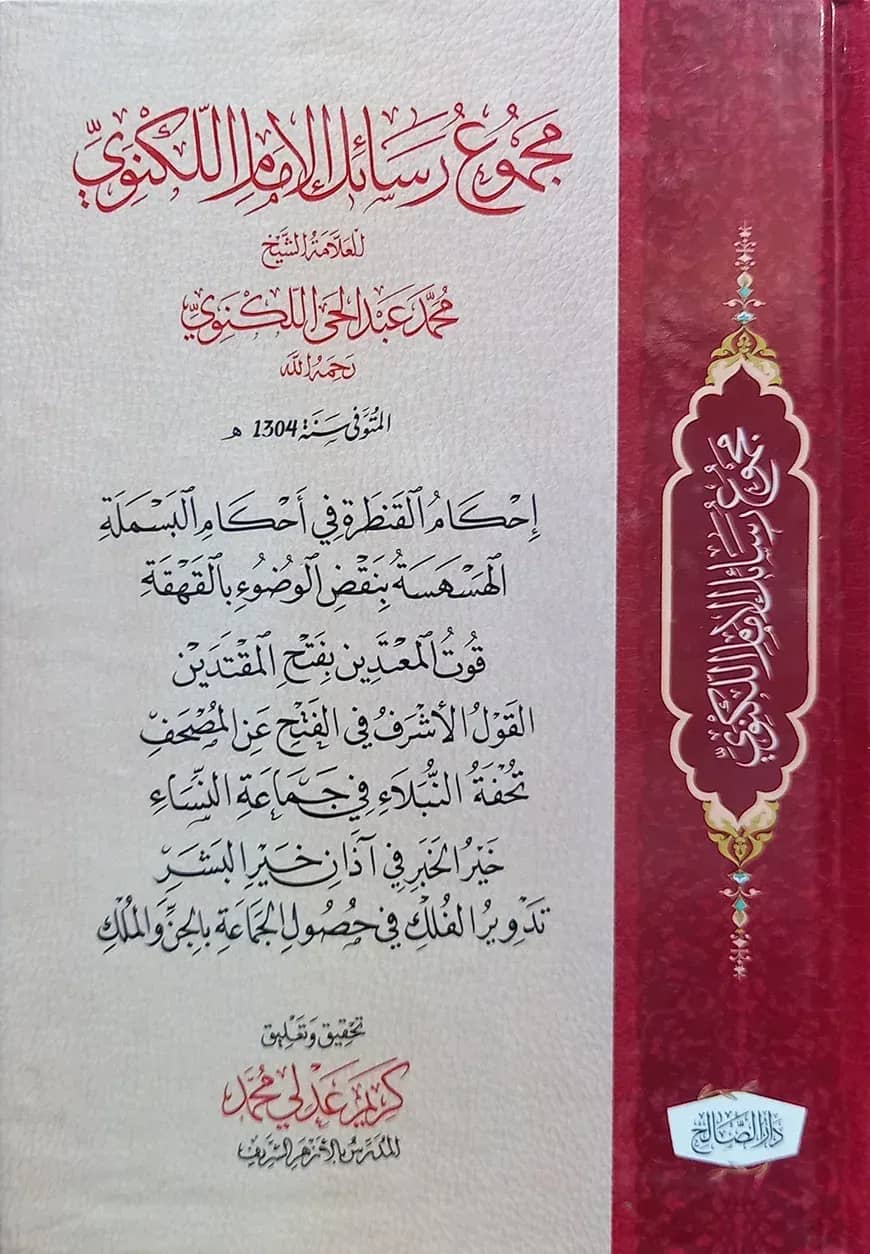 مجموع رسائل الإمام اللكنوي
للعلامة الشيخ
محمد عبد الحي اللكنوي
رحمه الله
المتوفى سنة 1304 هـ
إحكام القنطرة في أحكام البسملة
الهسهسة بنقض الوضوء بالقهقة
قوت المعتدين بفتح المقتدين
القول الأشرف في الفتح عن المصحف
تحفة النبلاء في جماعة النساء
خير الخبر في آذان خير البشر
تدوير الفلك في حصول الجماعة بالجن والملك
تحقيق وتعليق
كريم عدلي محمد
المدرس بالأزهر الشريف
مجموع رسائل الإمام اللكنوي
دار الصالح